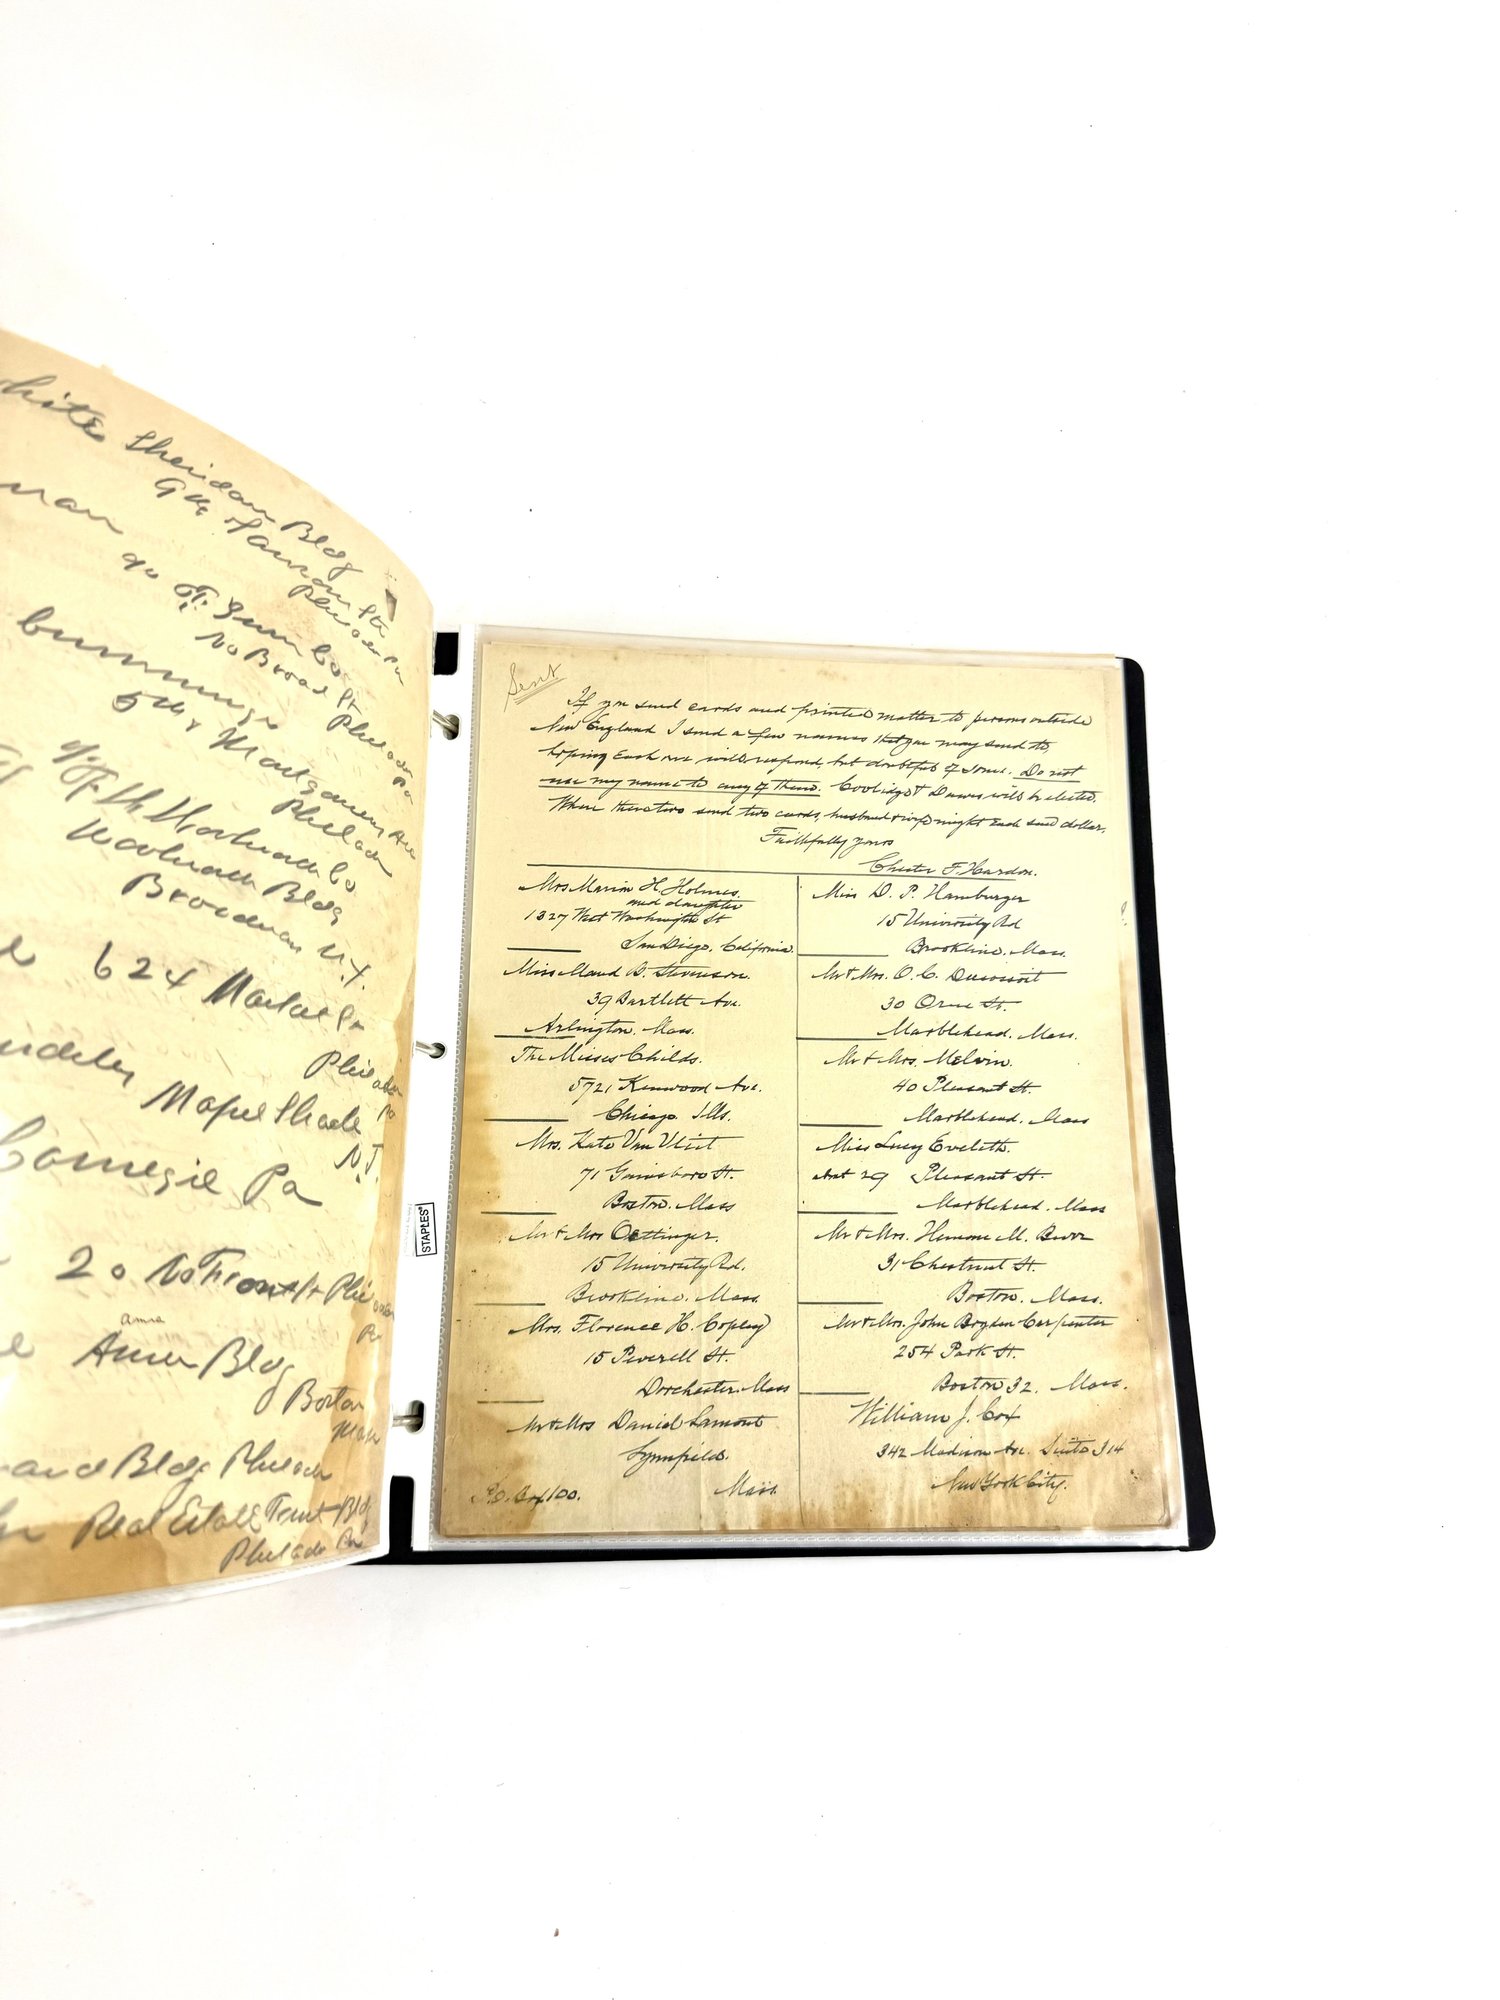 Sheridan Bldg
9th & Sansom Sts
Philada Pa
Co
No Broad St
Philada
Pa
5th & Montgomery Ave
Philada
Co
Woolworth Bldg
Broadway N.Y.
624 Market St
Philada
Pa
Maple Shade
N.J.
Carnegie Pa
20 No Front St Phila
Pa
Amer Bldg
Boston
Mass
Bldg Philada
Real Estate Trust Bldg
Philada Pa
STAPLES
Sent
If you send cards and printed matter to persons outside
New England I send a few names that you may send to,
hoping each one will respond, but doubtful of some. Do not
use my name to any of them. Coolidge & Dawes will be elected.
Where there two send two cards, husband & wife might each send dollar.
Faithfully yours
Chester F. Hardon.
Mrs Marion H. Holmes.
and daughter
1327 West Washington St
San Diego, California.
Miss Maud B. Stevenson.
39 Bartlett Ave.
Arlington. Mass.
The Misses Childs.
5721 Kenwood Ave.
Chicago Ills.
Mrs. Kate Van Vliet
71 Gainsboro St.
Boston. Mass
Mr & Mrs Oettinger.
15 University Rd.
Brookline. Mass.
Mrs. Florence H. Copley
15 Peverell St.
Dorchester. Mass
Mr & Mrs Daniel Lamont
Lynnfield.
P.O. Box 100. Mass.
Miss D. P. Hamburger
15 University Rd
Brookline. Mass.
Mr & Mrs. O. C.
30 Orne St.
Marblehead. Mass.
Mr & Mrs. Melvin.
40 Pleasant St.
Marblehead. Mass
Miss Lucy Eveleth.
about 29 Pleasant St.
Marblehead. Mass
Mr & Mrs. Herman M.
31 Chestnut St.
Boston. Mass.
Mr & Mrs. John Bryden Carpenter
254 Park St.
Boston 32. Mass.
William J. Cox
342 Madison Ave. Suite 314
New York City.